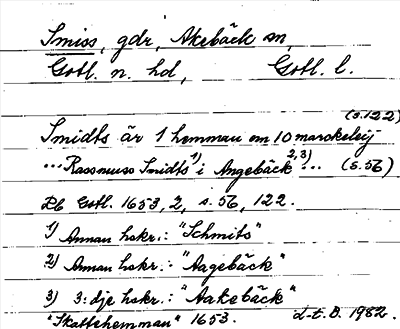 Smiss, gdr, Akebäck sn,
Gotl. n. hd, Gotl. l.
(s.122)
Smidts är 1 hemman om 10 marckeleij
...Rassmuss Smidts 1) i Angebäck 2,3) ... (s.56)
Db Gotl. 1653, 2, s. 56, 122.
1) Annan hskr.: "Schmits"
2) Annan hskr.: "Aagebäck"
3) 3:dje hskr.: "Aakebäck"
"Skattehemman" 1653. d-t. B. 1982.